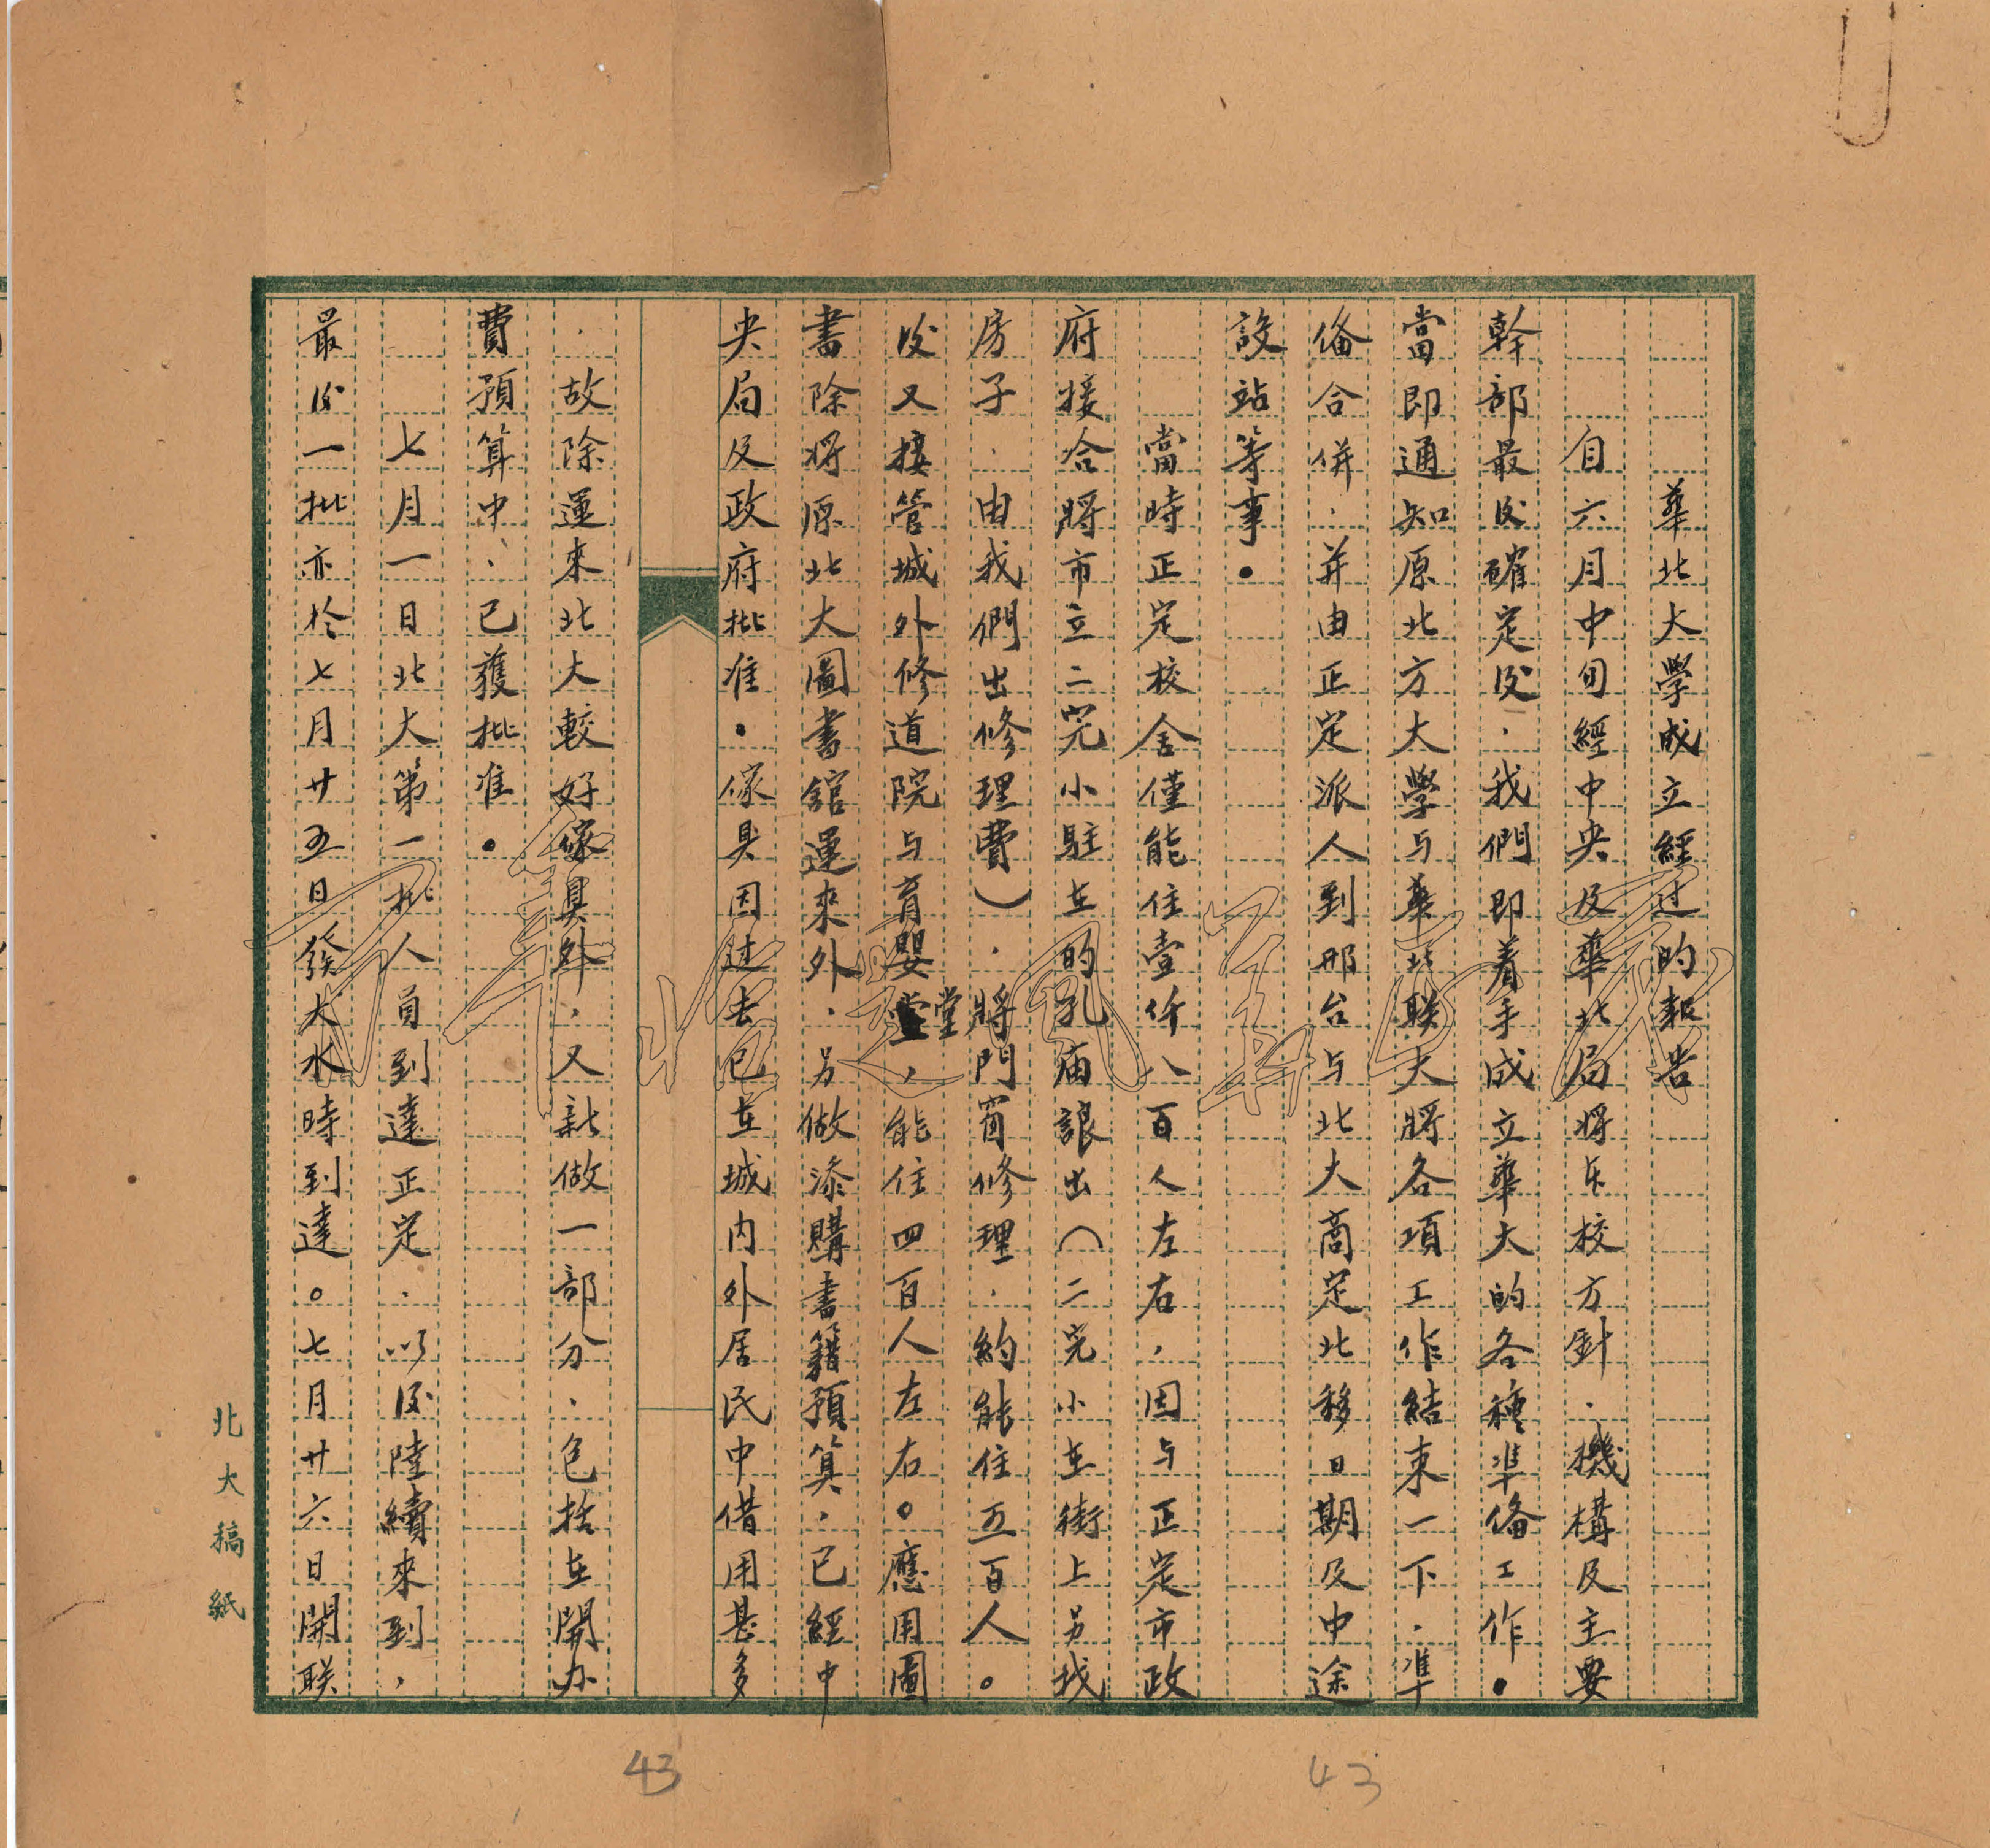 華北大學成立經过的報告
自六月中旬經中央及華北局將兩校方針．機構及主要
幹部最后確定后．我們即着手成立華大的各種準備工作。
當即通知原北方大學与華北联大將各項工作結束一下．準
備合併．并由正定派人到邢台与北大商定北移日期及中途
設站等事。
當時正定校舍僅能住壹仟八百人左右，因与正定市政
府接合將市立二完小駐在的孔庙讓出（二完小在街上另找
房子．由我們出修理費）．將門窗修理．約能住五百人。
后又接管城外修道院与育嬰堂，能住四百人左右。應用圖
書除將原北大圖書館運來外．另做添購書籍預算．已經中
央局及政府批准．傢具因过去已在城内外居民中借用甚多
．故除運來北大較好傢具外，又新做一部分．包括在開办
費預算中、已獲批准。
七月一日北大第一批人員到達正定．以后陸續來到，
最后一批亦於七月廿五日發大水時到達。七月廿六日開联
北大稿紙
43
43